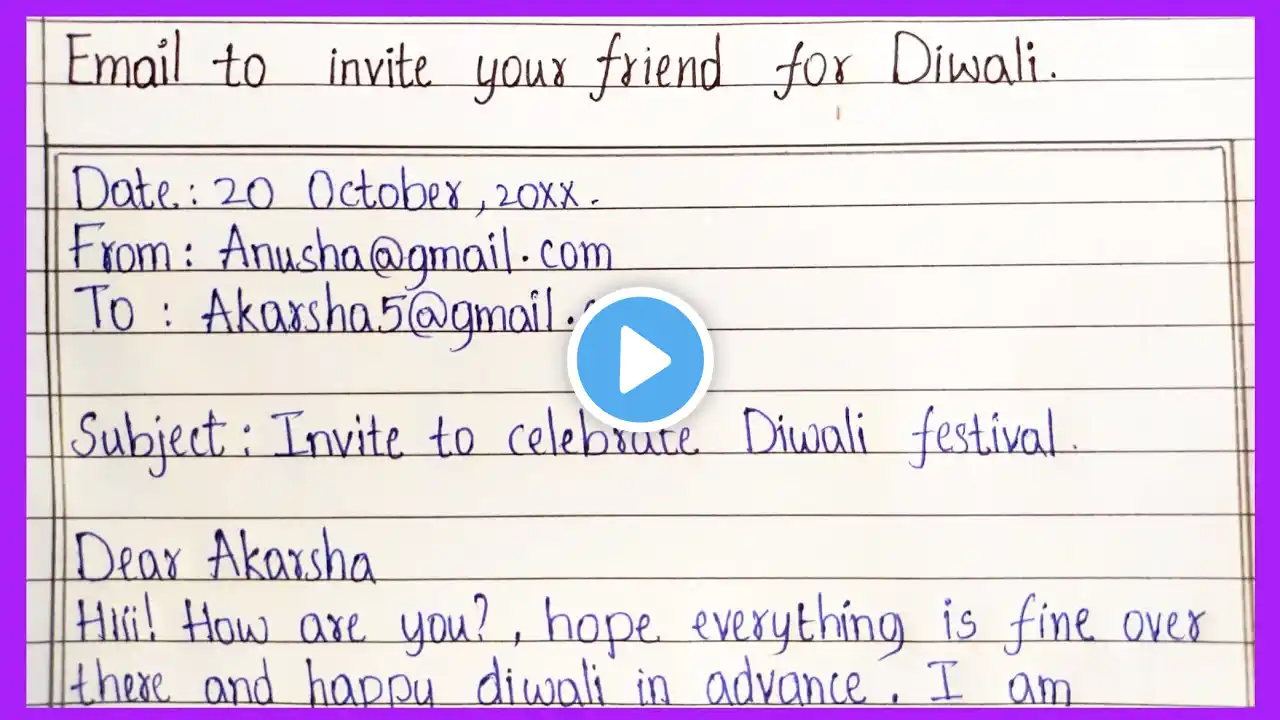 Email to invite your friend for Diwali.
Date: 20 October, 20xx.
From: Anusha@gmail.com
To : Akarsha5@gmail.
Subject: Invite to celebrate Diwali festival.
Dear Akarsha
Hiii! How are you?, hope everything is fine over
there and happy diwali in advance. I am